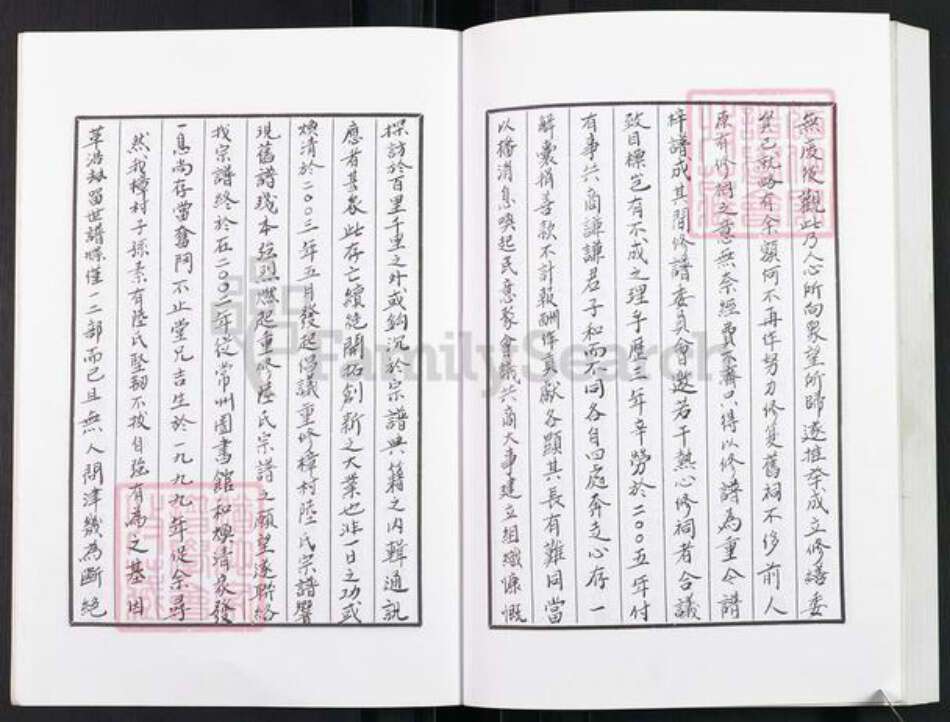 革浩劫留世譜牒僅一二部而已且無人問津幾為斷絕
然我樟村子孫素有陸氏堅韌不拔自強有為之基因
一息尚存當奮鬥不止堂兄吉生於一九九九年促余尋
找宗譜終於在二〇〇二年從常州圖書館和煥清家發
現舊譜殘本强烈燃起重修陸氏宗譜之願望遂聯絡
煥清於二〇〇三年五月發起倡議重修樟村陸氏宗譜響
應者甚衆此存亡續絕開拓創新之大業也非一日之功或
探訪於百里千里之外或鈎沉於宗譜典籍之內輯通訊
以播消息喚起民意聚會議共商大事建立組織慷慨
解囊捐善款不計報酬作貢獻各顯其長有難同當
有事共商謙謙君子和而不同各自四處奔走心存一
致目標豈有不成之理乎歷三年辛勞於二〇〇五年付
梓譜成其間修譜委員會邀若干熱心修祠者合議
原有修祠之意無奈經費不齊只得以修譜為重今譜
已就略有余額何不再作努力修复舊祠不修前人
無廢後觀此乃人心所向衆望所歸遂推奈成立修繕委
FamilySearch